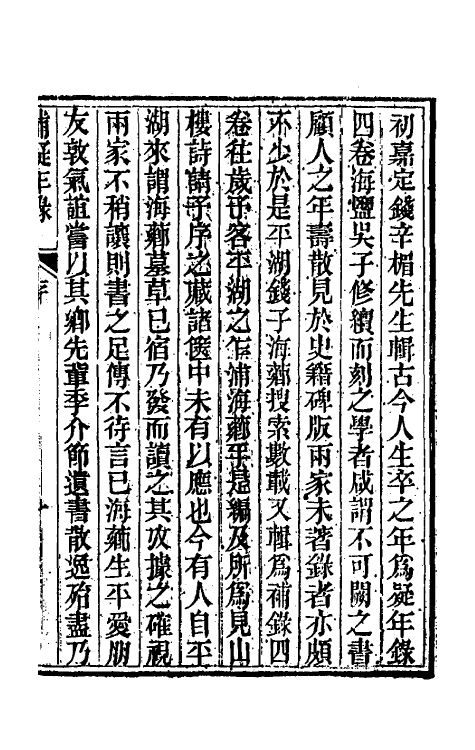 初嘉定錢辛楣先生輯古今人生卒之年爲疑年錄
四卷海鹽吳子修續而刻之學者咸謂不可闕之書
顧人之年壽散見於史籍碑版兩家未著錄者亦頗
不少於是平湖錢子海薌搜索數載又輯爲補錄四
卷往歲予客平湖之乍浦海薌手是編及所爲見山
樓詩請予序之藏諸篋中未有以應也今有人自平
湖來謂海薌墓草已宿乃發而讀之其攷據之確視
兩家不稍讓則書之足傳不待言已海薌生平愛朋
友敦氣誼嘗以其鄉先軰季介節遺書散逸殆盡乃
補疑年錄 序